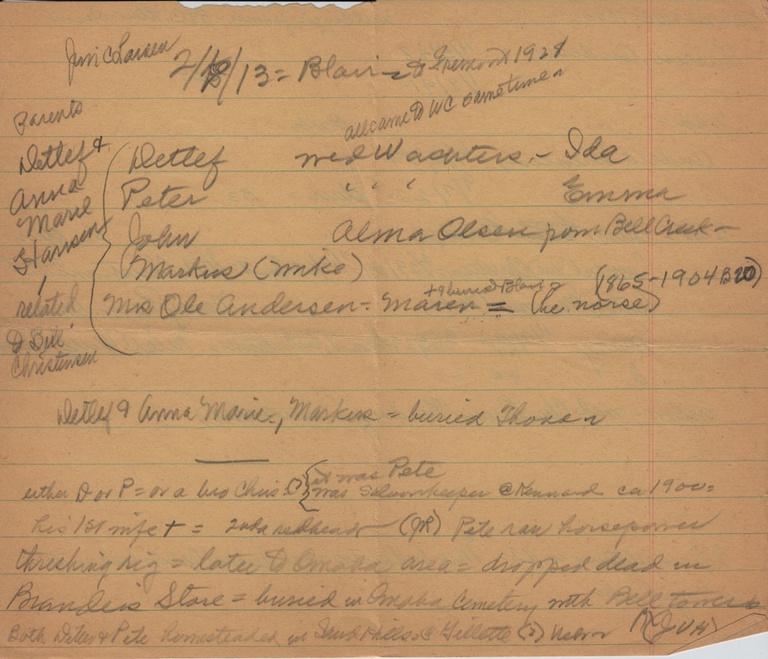 Jim C Larsen 2/18/13 = Blair - to Fremont 1921
all came to WC sometimes
Parents
Detlef & Anna Marie Hansen
related to Bill Christensen
Detlef wed Wachters - Ida
Peter " " " Emma
John Alma Olsen from Bell Creek -
Markus (Mike)
+ & buried Blair (1865-1904 B20)
Mrs Ole Andersen = Maren = (he. norse)
Detlef & Anna Marie, Markus = buried
either D or P = or a bro Chris (?) { it was Pete
was Saloonkeeper @ Kennard ca 1900 =
his 1st wife + = 2nd a redhead (JR) Pete ran horsepower
threshing rig = later to Omaha area = dropped dead in
Brandeis Store = buried in Omaha Cemetery with Bell towers
Both Detlef & Pete homesteaded in Sand Hills @ Gillette (?) Nebr